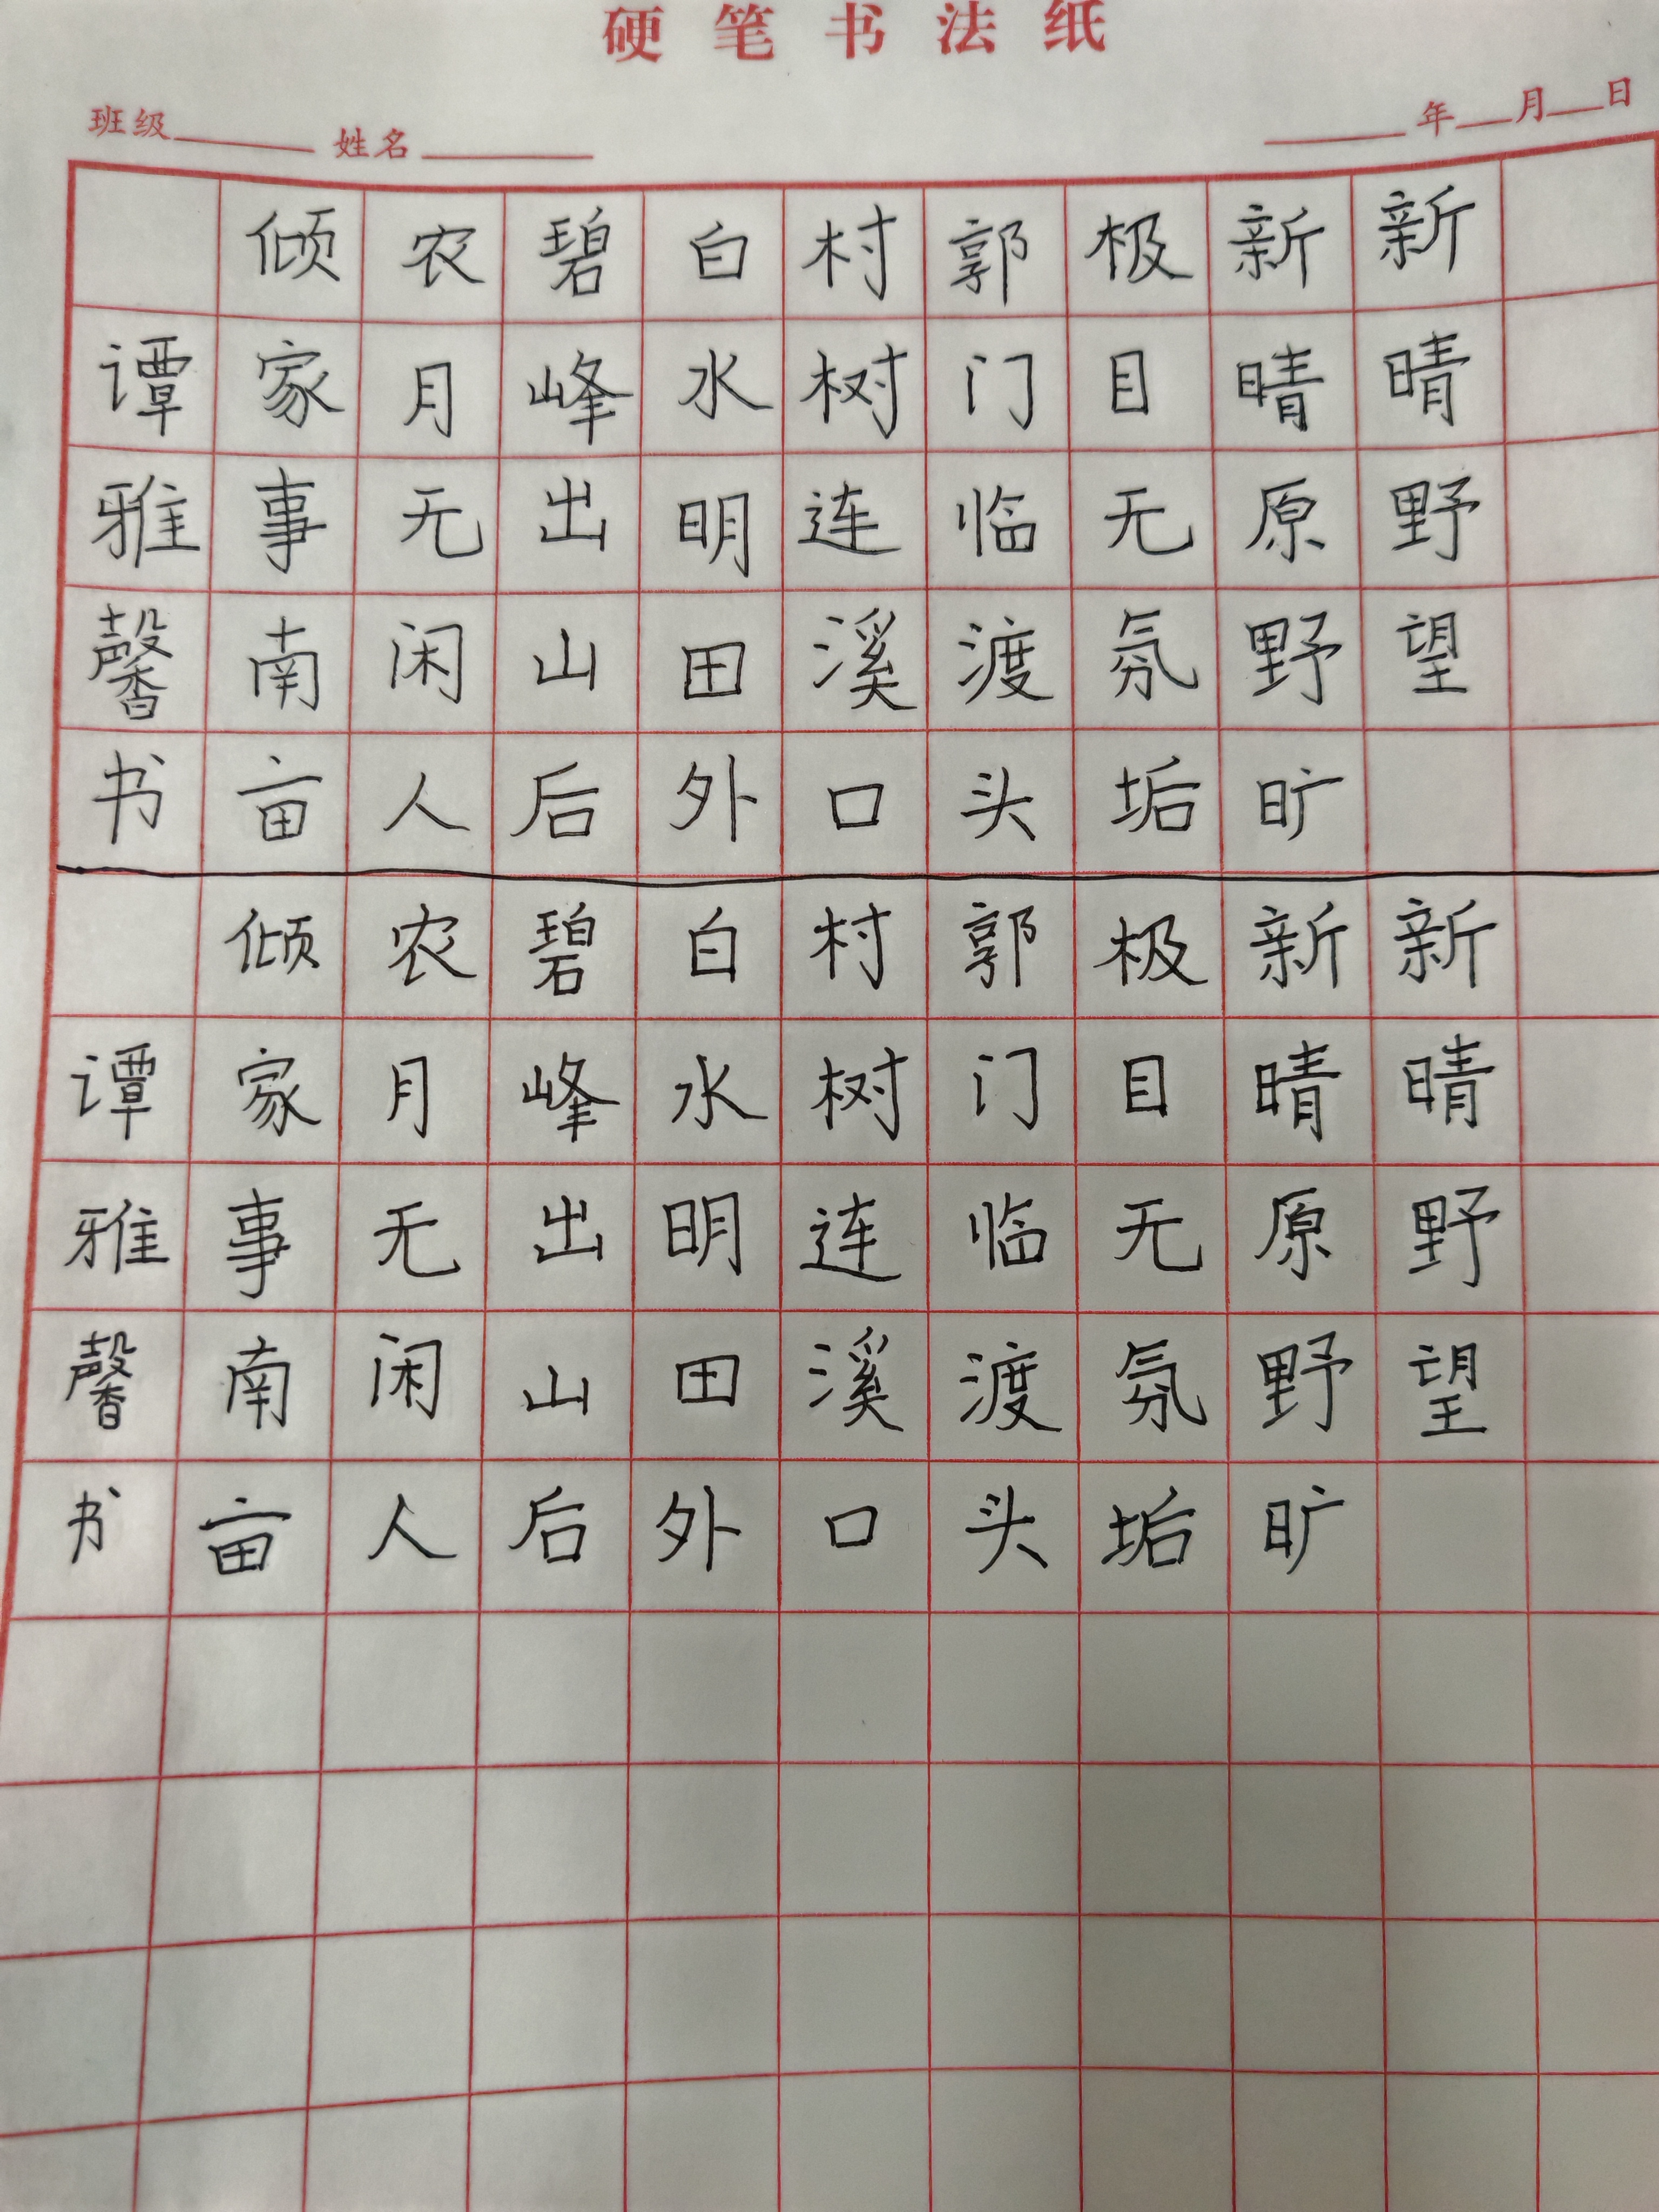 硬笔书法纸
班级 姓名 年 月 日
新晴野望
新晴原野旷
极目无氛垢
郭门临渡头
村树连溪口
白水明田外
碧峰出山后
农月无闲人
倾家事南亩
谭雅馨书
新晴野望
新晴原野旷
极目无氛垢
郭门临渡头
村树连溪口
白水明田外
碧峰出山后
农月无闲人
倾家事南亩
谭雅馨书